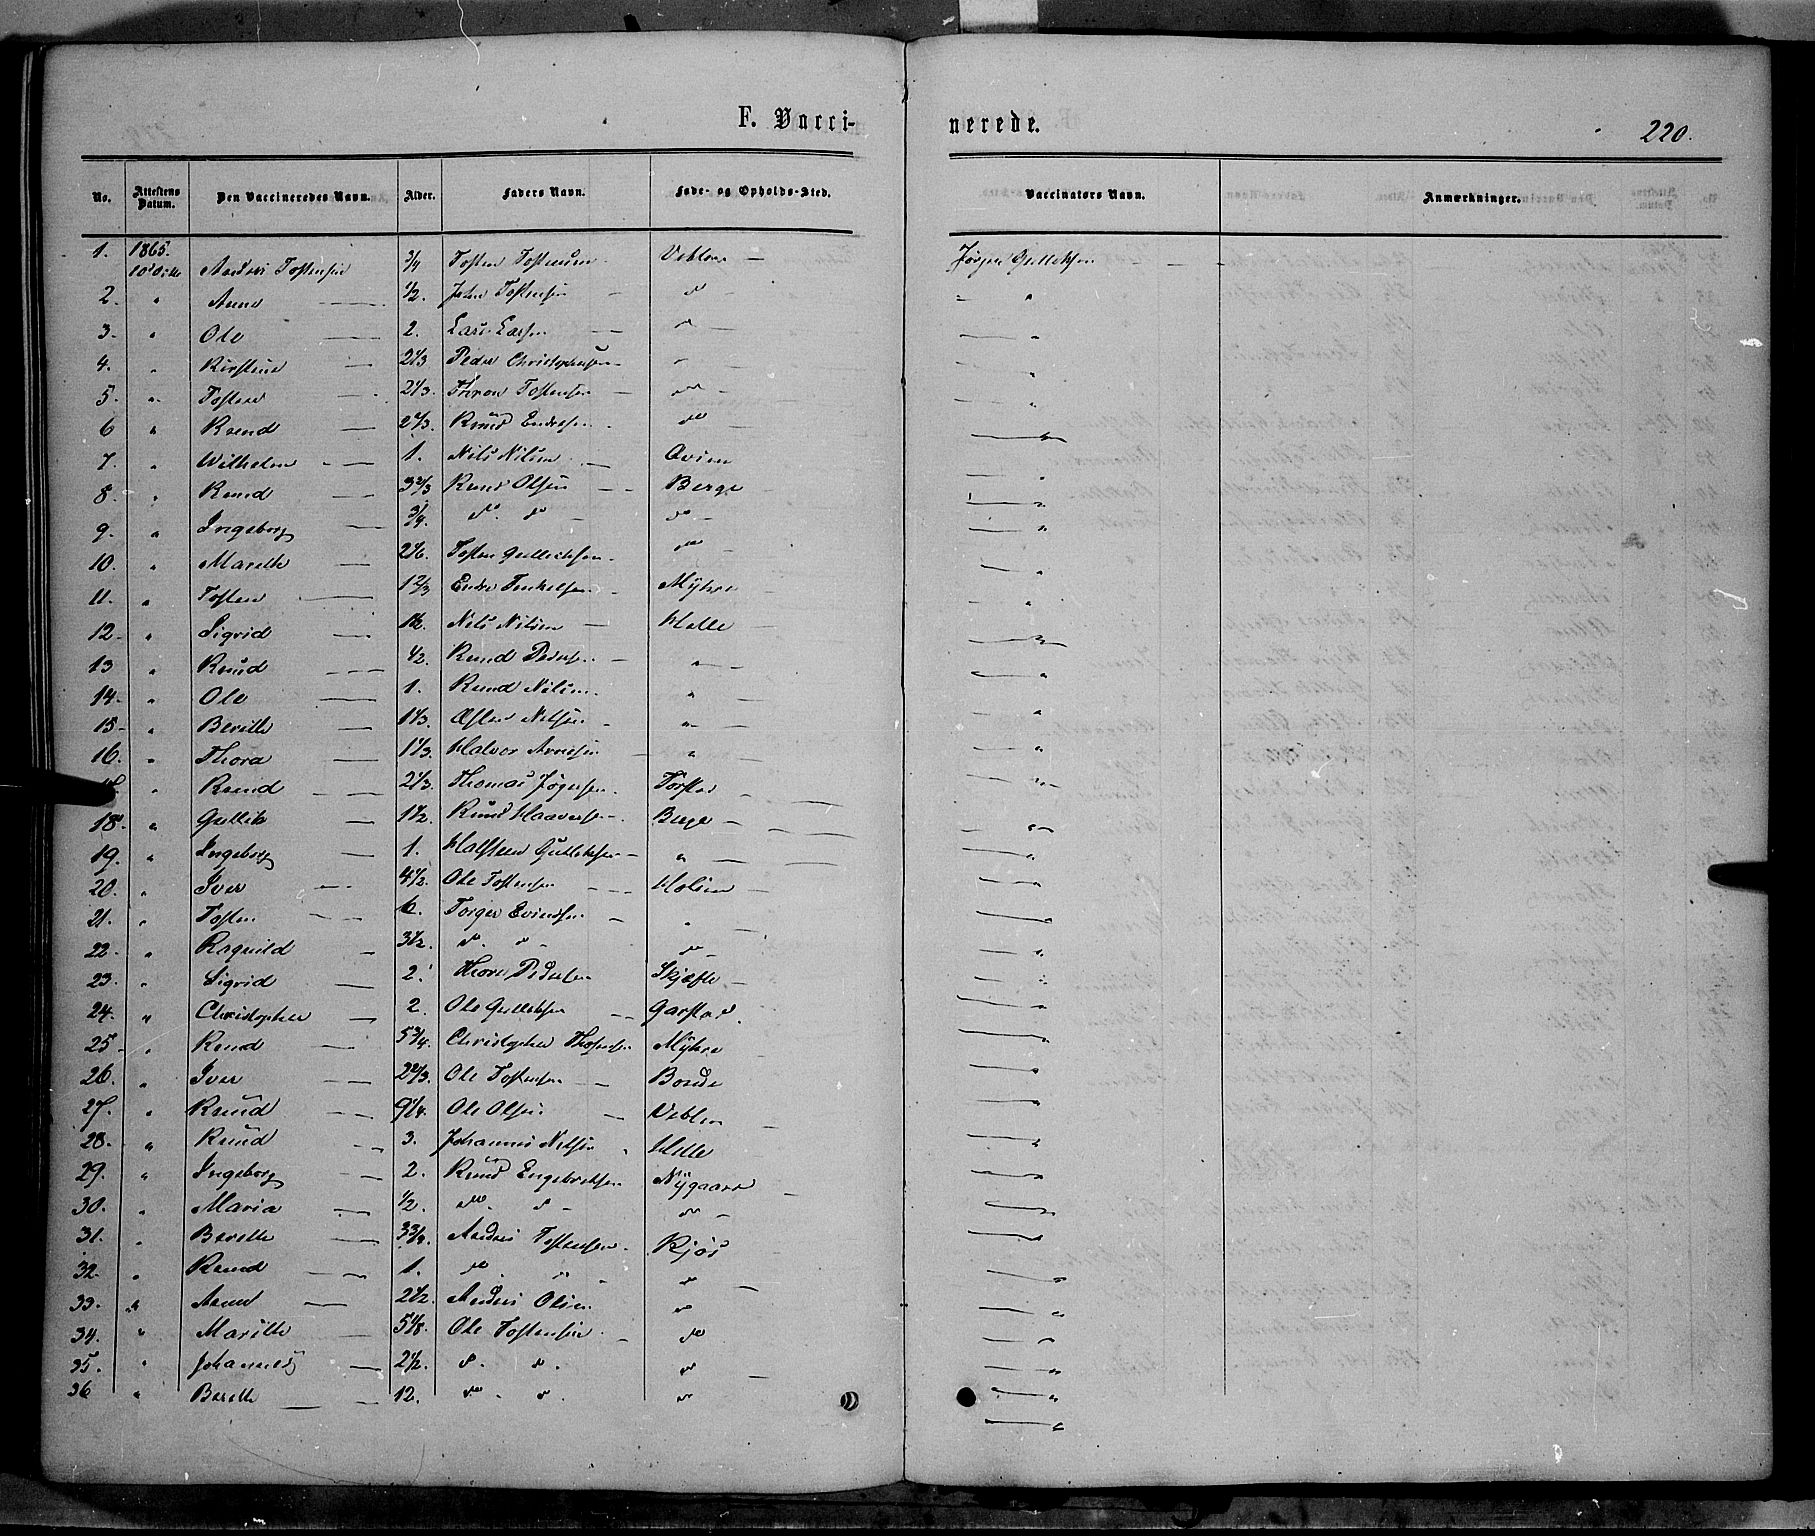 F. Vacci-
nerede.
220.
No. Attestens Datum. Den Vaccineredes Navn. Alder. Faders Navn. Føde- og Opholds-Sted. Vaccinators Navn. Anmærkninger.
1. 1865. 10 Andris Tostensen 3/4 Tosten Tostensen Veblen Jørgen Gulleksen
2. " Anne 1/2. John Tostensen do "
3. " Ole 2. Lars Larsen do "
4. " Kirstine 2 1/3 Peder Christophersen "
5. " Tosten 2 1/3. Thron Tostensen do "
6 " Knud 2 2/3. Knud Endresen do "
7. " Wilhelm 1. Nils Nilsen Qvien "
8. " Knud 3 2/3 Knud Olsen Berge "
9. " Ingeborg 3/4. do do do "
10. " Marethe Tosten Gulleksen do "
11. " Tosten 1 2/3 Endre Mykre "
12. " Sigrid Nils Nilsen Helle "
13 " Knud 1/2. Knud Pedersen " "
14. " Ole 1. Knud Nilsen " "
15. " Berithe 1 1/3. Nilsen " "
16. " Thora 1 1/3. Halvor Arnesen " "
" Knud 2 1/3. Thomas Jørgensen "
18. " Gullik 1 1/2 Knud Haaversen Berge "
19. " Ingeborg 1. Halsten Gulleksen " "
20. " Iver 4 1/2. Ole Tostensen Holien
21. " Tosten 6. Torger Evindsen " "
22. " Ragnild 3 1/2. do do do "
23. " Sigrid 2. Thore Pedersen Skjefte "
24. " Christopher 2. Ole Gulleksen Garstad "
25. " Knud 5 3/4. Christopher Mykre "
26. " Iver 2 2/3. Ole Tostensen "
27. " Knud 9 1/4. Ole Olsen Veblen "
28. " Knud 3. Johannes Nilsen Helle "
29. " Ingeborg 2. Knud Engebrektsen Nygaard
30. " Maria 1/2. do do do "
31. " Berethe 3 3/4. Andris Tostensen Kjøs "
32. " Knud 1. do " do "
33. " Anne 2 1/2. Andris Olsen do "
34. " Marithe 5 1/8. Ole Tostensen do "
35. " Johannes 2 1/2. do do do "
36 " Berethe 12. do do do "